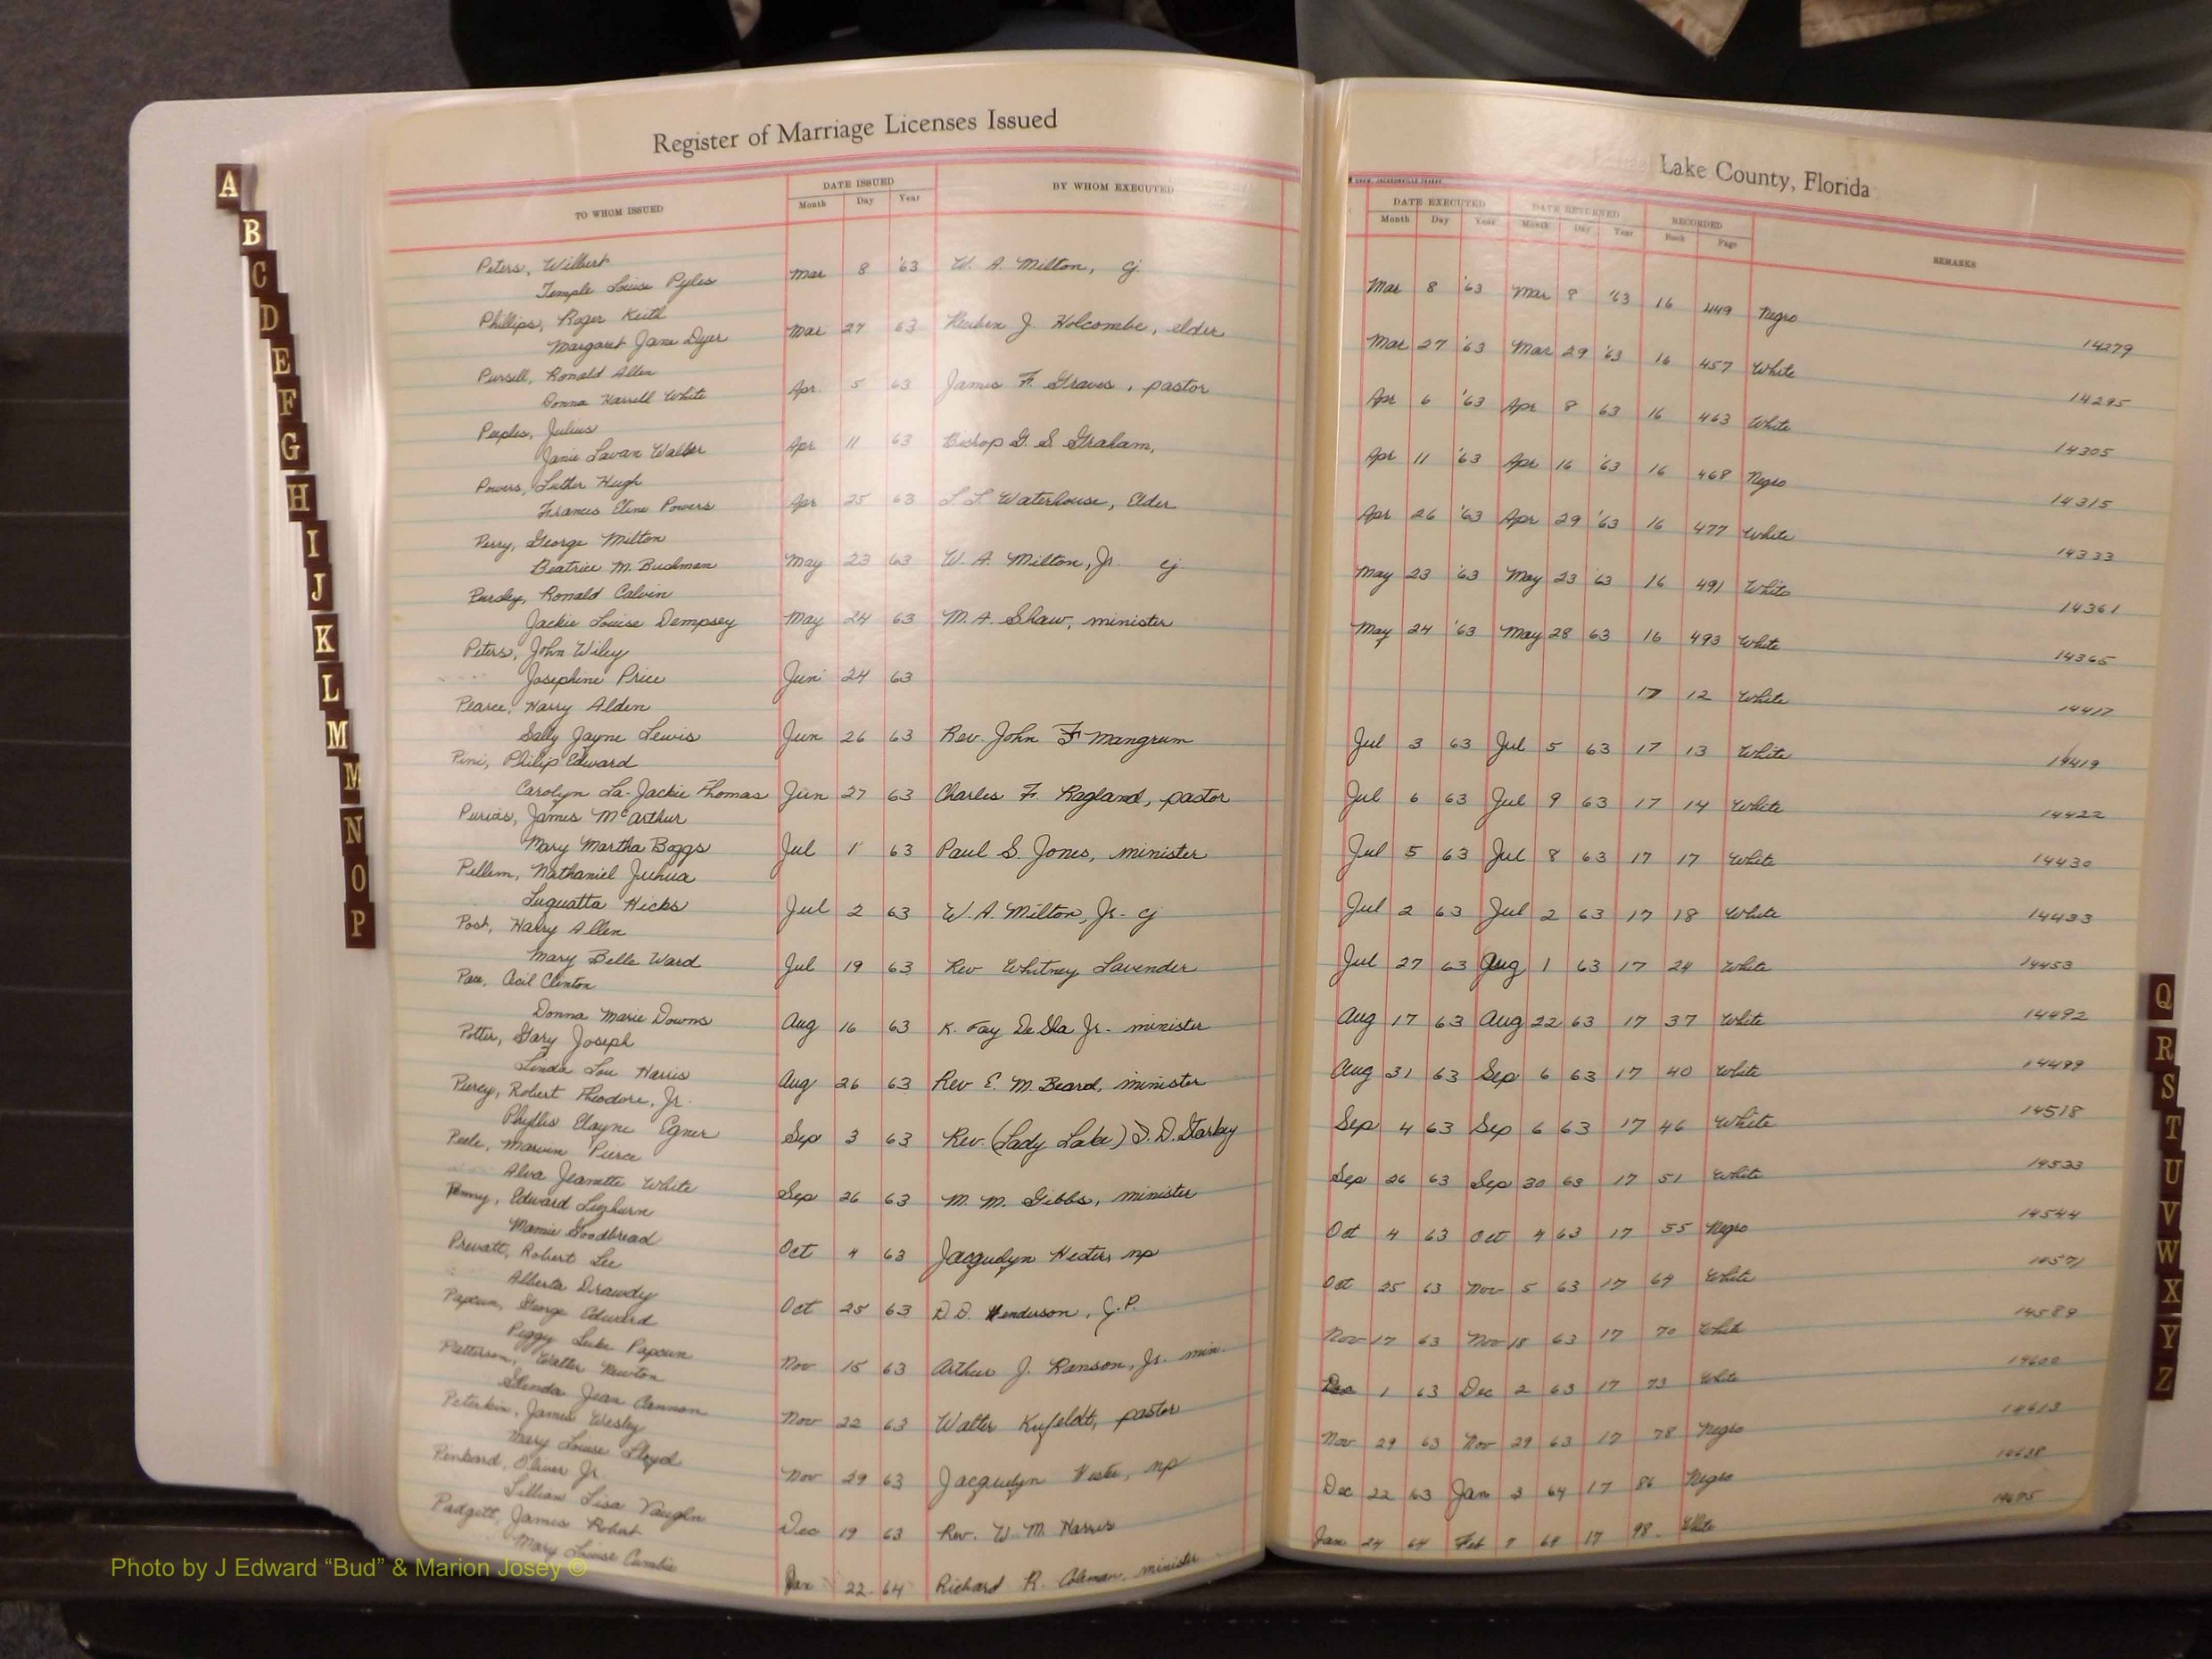 Register of Marriage Licenses Issued
TO WHOM ISSUED DATE ISSUED BY WHOM EXECUTED
Month Day Year
Peters, Wilbert
Temple Louise Pyles Mar 8 '63 W. A. Milton, cj
Phillips, Roger Keith
Margaret Jane Dyer Mar 27 63 Reuben J. Holcombe, elder
Pursell, Ronald Allen
Donna Harrell White Apr 5 63 James F. Graves, pastor
Peeples, Julius
Janie Lavan Walker Apr 11 63 Bishop G. S. Graham,
Powers, Luther Hugh
Frances Elene Powers Apr 25 63 L. L. Waterhouse, Elder
Perry, George Milton
Beatrice M. Buchman May 23 63 W. A. Milton, Jr. cj
Pursley, Ronald Calvin
Jackie Louise Dempsey May 24 63 M. A. Shaw, minister
Peters, John Wiley
Josephine Price Jun 24 63
Pearce, Harry Alden
Sally Jayne Lewis Jun 26 63 Rev. John F Mangrum
Pini, Philip Edward
Carolyn La-Jackie Thomas Jun 27 63 Charles F. Ragland, pastor
James McArthur
Mary Martha Boggs Jul 1 63 Paul S. Jones, minister
Pellem, Nathaniel
Luquatta Hicks Jul 2 63 W. A. Milton, Jr- cj
Post, Harry Allen
Mary Belle Ward Jul 19 63 Rev Whitney Lavender
Pace, Cecil Clinton
Donna Marie Downs Aug 16 63 K. Fay Jr- minister
Potter, Gary Joseph
Linda Lou Harris Aug 26 63 Rev E. M. Beard, minister
Piercy, Robert Theodore, Jr.
Phyllis Elayne Egner Sep 3 63 Rev. (Lady Lake)
Peele, Marvin Pierce
Alva Jeanette White Sep 26 63 M. M. Gibbs, minister
Penny, Edward
Mamie Goodbread Oct 4 63 Jacquelyn Hester, np
Prevatt, Robert Lee
Alberta Drawdy Oct 25 63 D. D. Henderson, J.P.
Papcun, George Edward
Peggy Luke Papcun Nov 15 63 Arthur J. Ranson, Jr. min.
Patterson, Walter Newton
Glenda Jean Cannon Nov 22 63 Walter Kufeldt, pastor
Peterkin, James Wesley
Mary Louise Lloyd Nov 29 63 Jacquelyn Hester, np
Oliver Jr.
Lillian Lisa Vaughn Dec 19 63 Rev. W. M. Harris
Padgett, James Robert
Mary Louise Cumbie Jan 22 64 Richard R. Coleman, minister
Lake County, Florida
DATE EXECUTED DATE RETURNED RECORDED REMARKS
Month Day Year Month Day Year Book Page
Mar 8 '63 Mar 8 '63 16 449 Negro 14279
Mar 27 '63 Mar 29 '63 16 457 White 14295
Apr 6 '63 Apr 8 63 16 463 White 14305
Apr 11 '63 Apr 16 '63 16 468 Negro 14315
Apr 26 '63 Apr 29 '63 16 477 White 14333
May 23 '63 May 23 '63 16 491 White 14361
May 24 '63 May 28 63 16 493 White 14365
17 12 White 14417
Jul 3 63 Jul 5 63 17 13 White 14419
Jul 6 63 Jul 9 63 17 14 White 14422
Jul 5 63 Jul 8 63 17 17 White 14430
Jul 2 63 Jul 2 63 17 18 White 14433
Jul 27 63 Aug 1 63 17 24 White 14453
Aug 17 63 Aug 22 63 17 37 White 14492
Aug 31 63 Sep 6 63 17 40 White 14499
Sep 4 63 Sep 6 63 17 46 White 14518
Sep 26 63 Sep 30 63 17 51 White 14533
Oct 4 63 Oct 4 63 17 55 Negro 14544
Oct 25 63 Nov 5 63 17 64 White 14571
Nov 17 63 Nov 18 63 17 70 White 14589
Dec 1 63 Dec 2 63 17 73 White 14600
Nov 29 63 Nov 29 63 17 78 Negro 14613
Dec 22 63 Jan 3 64 17 86 Negro 14638
Jan 24 64 Feb 7 64 17 98 White 14675
A
B
C
D
E
F
G
H
I
J
K
L
M
M
N
O
P
Q
R
S
T
U
V
W
X
Y
Z
Photo by J Edward “Bud” & Marion Josey ©